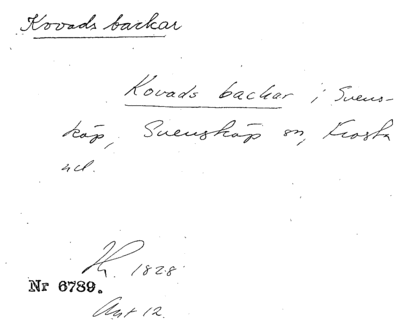 Kovads backar
Kovads backar i Svens-
köp, Svensköp sn, Frosta
hd.
1828
Nr 6789.
Akt 12.